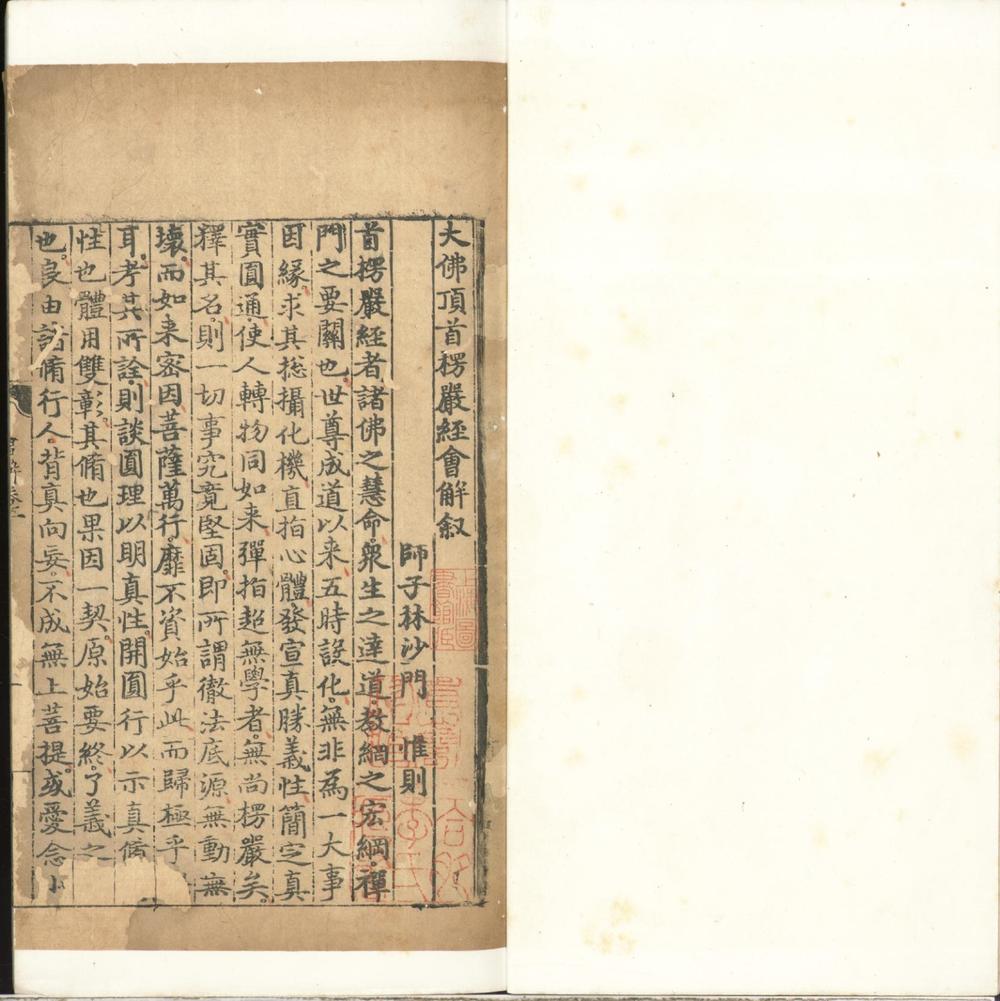 大佛頂首楞嚴經會解叙
師子林沙門 惟則
首楞嚴經者諸佛之慧命衆生之達道教綱之宏綱禪
門之要關也世尊成道以来五時設化無非為一大事
因緣求其捴攝化機直指心體發宣真勝義性簡定真
實圓通使人轉物同如来彈指超無學者無尚楞嚴矣
釋其名則一切事究竟堅固即所謂徹法底源無動無
壞而如来密因菩薩萬行靡不資始乎此而歸極乎
耳考其所詮則談圓理以明真性開圓行以示真脩
性也體用雙彰其脩也果因一契原始要終了義之
也良由諸脩行人背真向妄不成無上菩提或愛念小